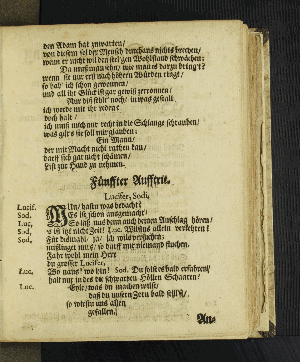 den Adam hat zuwarten/
von diesem sol der Mensch durchaus nichts brechen/
wann er nicht wil den stetgen Wohlstand schwächen:
Da muß ungezehn/ wie man es darzu bringt?
wenn sie nur erst nach höhern Würden ringt/
so hab' ich schon gewonnen/
und all ihr Glück ist gar gewiß zerronnen/
Nur diß fehlt noch/ in was gestalt
ich werde mit ihr reden?
doch halt/
ich muß mich nur recht in die Schlange schrauben/
was gilts sie soll mir glauben:
Ein Mann/
der mit Macht nicht rathen kan/
darff sich gar nicht schämen/
List zur Hand zu nehmen.
Fünffter Aufftritt.
Lucifer, Sodi,
Lucif. NUn/ hastu was bedacht?
Sod. Es ist schon ausgemacht/
Luc, So laß uns denn auch deinen Anschlag hören/
Sod, es ist nicht Zeit! Luc. Wilstus allein verkehren?
Sod, Für dißmahl/ ja/ ich wils versuchen:
mißlinget mirs/ so darff mir niemand fluchen.
Fahr wohl mein Herr
du grosser Lucifer,
Luc, Wo naus? wo hin? Sod. Du solst es bald erfahren/
halt nur indes die schwartzen Höllen Schaaren?
Luc. Eyle/ was du machen wilst/
daß du unsern Zorn bald stillst/
so wirstu uns allen
gefallen.
An-